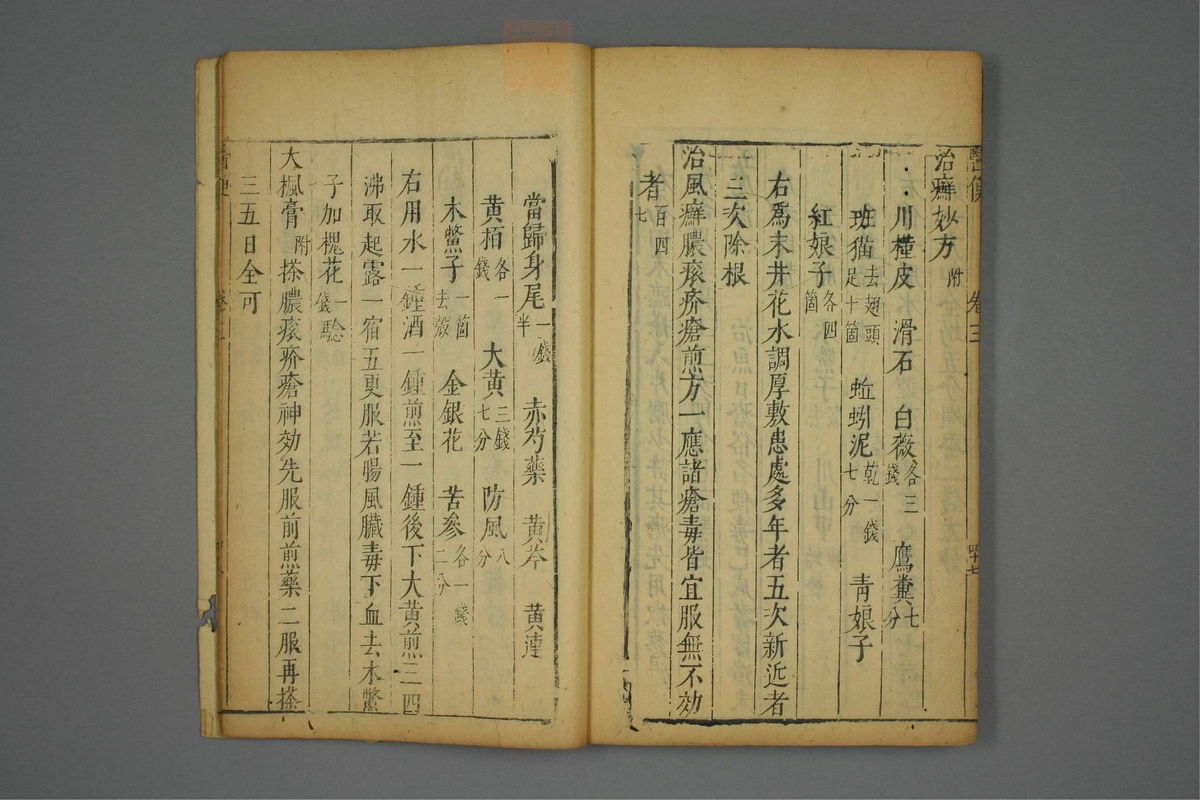 醫便 卷三 四十七
治癬妙方附
川槿皮 滑石 白薇各三錢 鷹糞七分
班猫去翅頭足十箇 蚯蚓泥乾一錢七分 青娘子
紅娘子各四箇
右爲末井花水調厚敷患處多年者五次新近者
三次除根
治風癬膿瘡疥瘡煎方一應諸瘡毒皆宜服無不効
者百四七
當歸身尾一錢半 赤芍藥 黄芩 黄連
黄栢各一錢 大黄三錢七分 防風八分
木鱉子一箇去殻 金銀花 苦參各一錢二分
右用水一鍾酒一鍾煎至一鍾後下大黄煎三四
沸取起露一宿五更服若腸風臟毒下血去木鱉
子加槐花一錢騐
大楓膏附 搽膿瘡疥瘡神効先服前煎藥二服再搽
三五日全可